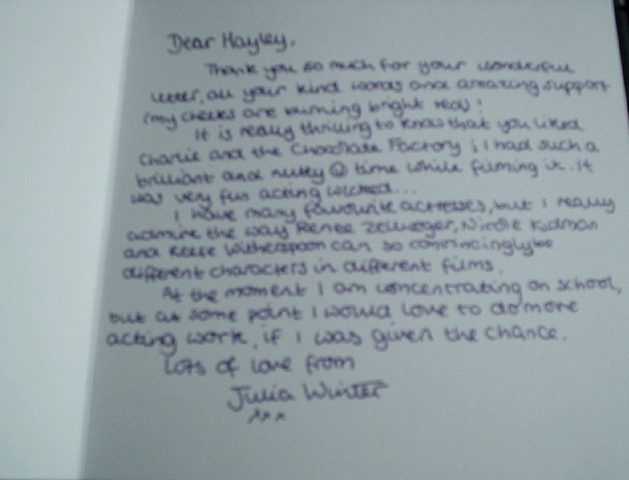 Dear Hayley,
Thank you so much for your wonderful
letter, all your kind words and amazing support
(my cheeks are burning bright red)!
It is really thrilling to know that you liked
Charlie and the Chocolate Factory; I had such a
brilliant and nutty ☺ time while filming it. It
was very fun acting wicked...
I have many favourite actresses, but I really
admire the way Renee Zellweger, Nicole Kidman
and Reese Witherspoon can so convincingly be
different characters in different films.
At the moment I am concentrating on school,
but at some point I would love to do more
acting work, if I was given the chance.
Lots of love from
Julia Winter
xxx